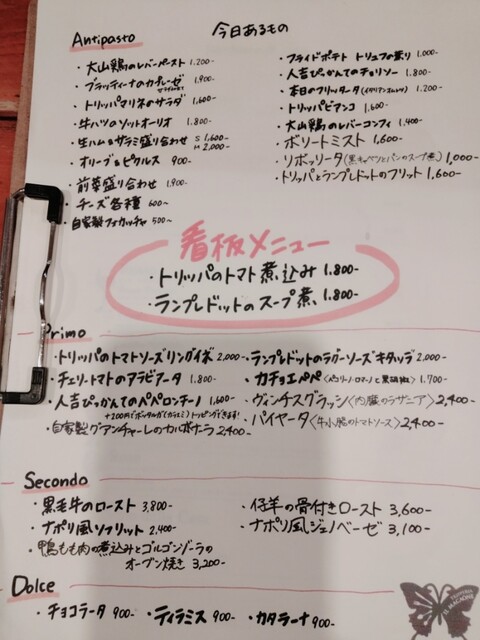 今日あるもの
Antipasto
・大山鶏のレバーペースト 1.200-
・ブラッティーナのカプレーゼ 1.900-
・トリッパマリネのサラダ 1,600-
・牛ハツのソットオーリオ 1.800-
・生ハム&サラミ盛り合わせ S 1,600- M 2,000-
・オリーブ&ピクルス 900-
・前菜盛り合わせ 1.900-
・チーズ各種 600~
・自家製フォカッチャ 500~
・フライドポテト トリュフの薫り 1,000-
・人吉ぴっかんてのチョリソー 1.800-
・本日のフリッタータ(イタリアンオムレツ) 1.200-
・トリッパビアンコ 1,600-
・大山鶏のレバーコンフィ 1.400-
・ボリートミスト 1,600-
・リボッリータ(黒キャベツとパンのスープ煮) 1,000-
・トリッパとランプレドットのフリット 1,600-
看板メニュー
・トリッパのトマト煮込み 1.800-
・ランプレドットのスープ煮 1.800-
Primo
・トリッパのトマトソースリングイネ 2,000-
・チェリートマトのアラビアータ 1.800-
・人吉ぴっかんてのペペロンチーノ 1,600-
+200円でボッタルガ(カラスミ)トッピングできます!
・自家製グアンチャーレのカルボナーラ 2,400-
・ランプレドットのラグーソースキタッラ 2,000-
・カチョエペペ〈ペコリーノロマーノと黒胡椒〉 1.700-
・ヴィンチスグラッシ〈内臓のラザニア〉 2,400-
・パイヤータ〈牛小腸のトマトソース〉 2,400-
Secondo
・黒毛牛のロースト 3,800-
・ナポリ風ソフリット 2,400-
・鴨もも肉の煮込みとゴルゴンゾーラの
オーブン焼き 3,200-
・仔羊の骨付きロースト 3,600-
・ナポリ風ジェノベーゼ 3,100-
Dolce
・チョコラータ 900-
・ティラミス 900-
・カタラーナ 900-
TRIPPERIA
IL MAGAONE